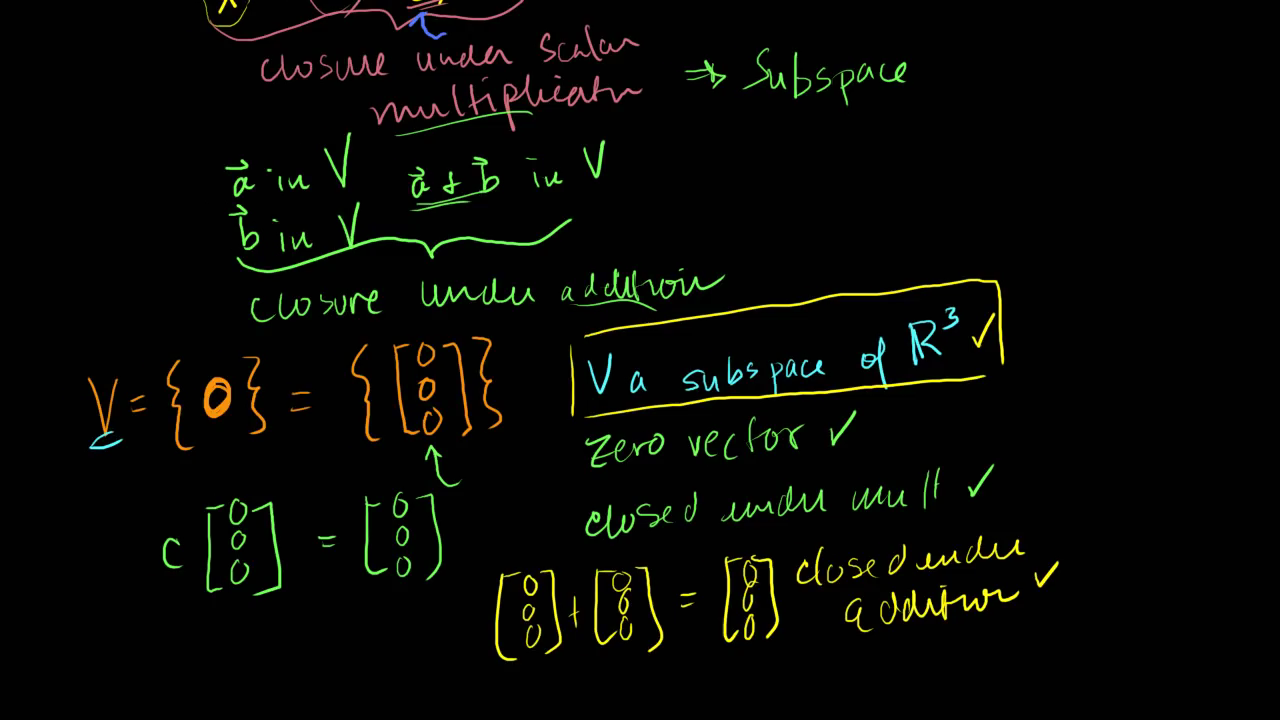 closure under scalar
multiplicatn ⇒ Subspace
a⃗ in V a⃗ + b⃗ in V
b⃗ in V
closure under addition
V = {0} = {[0 0 0]}
V a subspace of ℝ³ ✓
zero vector ✓
closed under mult ✓
c [0 0 0] = [0 0 0]
[0 0 0] + [0 0 0] = [0 0 0]
closed under
addition ✓